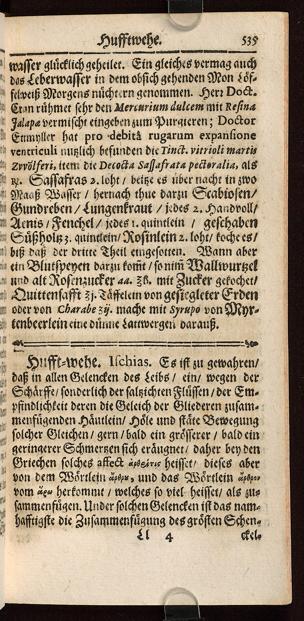 Hufftwehe. 535
wasser glücklich geheilet. Ein gleiches vermag auch
das Leberwasser in dem obsich gehenden Mon Löf-
felweiß Morgens nüchtern genommen. Herr Doct.
Eran rühmet sehr den Mercurium dulcem mit Resina
Jalapæ vermischt eingeben zum Purgieren; Doctor
Etmyller hat pro debita rugarum expansione
ventriculi nutzlich befunden die Tinct. vitrioli martis
Zvvölferi, item die Decocta Sassafrata pectoralia, als
℞. Sassafras 2. loht / beitze es über nacht in zwo
Maaß Wasser / hernach thue darzu Scabiosen /
Gundreben / Lungenkraut / jedes 2. Handvoll /
Aenis / Fenchel / jedes 1. quintlein / geschaben
Süßholtz 3. quintlein / Rosinlein 2. loht / koche es /
biß daß der dritte Theil eingesotten. Wann aber
ein Blutspeyen darzu komt / so nim Wallwurtzel
und alt Rosenzucker aa. ℥ß. mit Zucker gekochet /
Quittensafft ℥j. Täffelein von gesiegleter Erden
oder von Charabe ʒij. mache mit Syrupo von Myr-
tenbeerlein eine dünne Lattwergen darauß.
Hufft-wehe. Ischias. Es ist zu gewahren /
daß in allen Gelencken des Leibs / ein / wegen der
Schärffe / sonderlich der saltzichten Flüssen / der Em-
pfindlichkeit deren die Gleich der Gliederen zusam-
menfügenden Häutlein / Höle und stäte Bewegung
solcher Gleichen / gern / bald ein grösserer / bald ein
geringerer Schmertzen sich eräugnet / daher bey den
Griechen solches affect heisset / dieses aber
von dem Wörtlein und das Wörtlein
vom herkomt / welches so viel heisset / als zu-
sammenfügen. Under solchen Gelencken ist das nam-
hafftigste die Zusammenfügung des grösten Schen-
Ll 4 ckel-